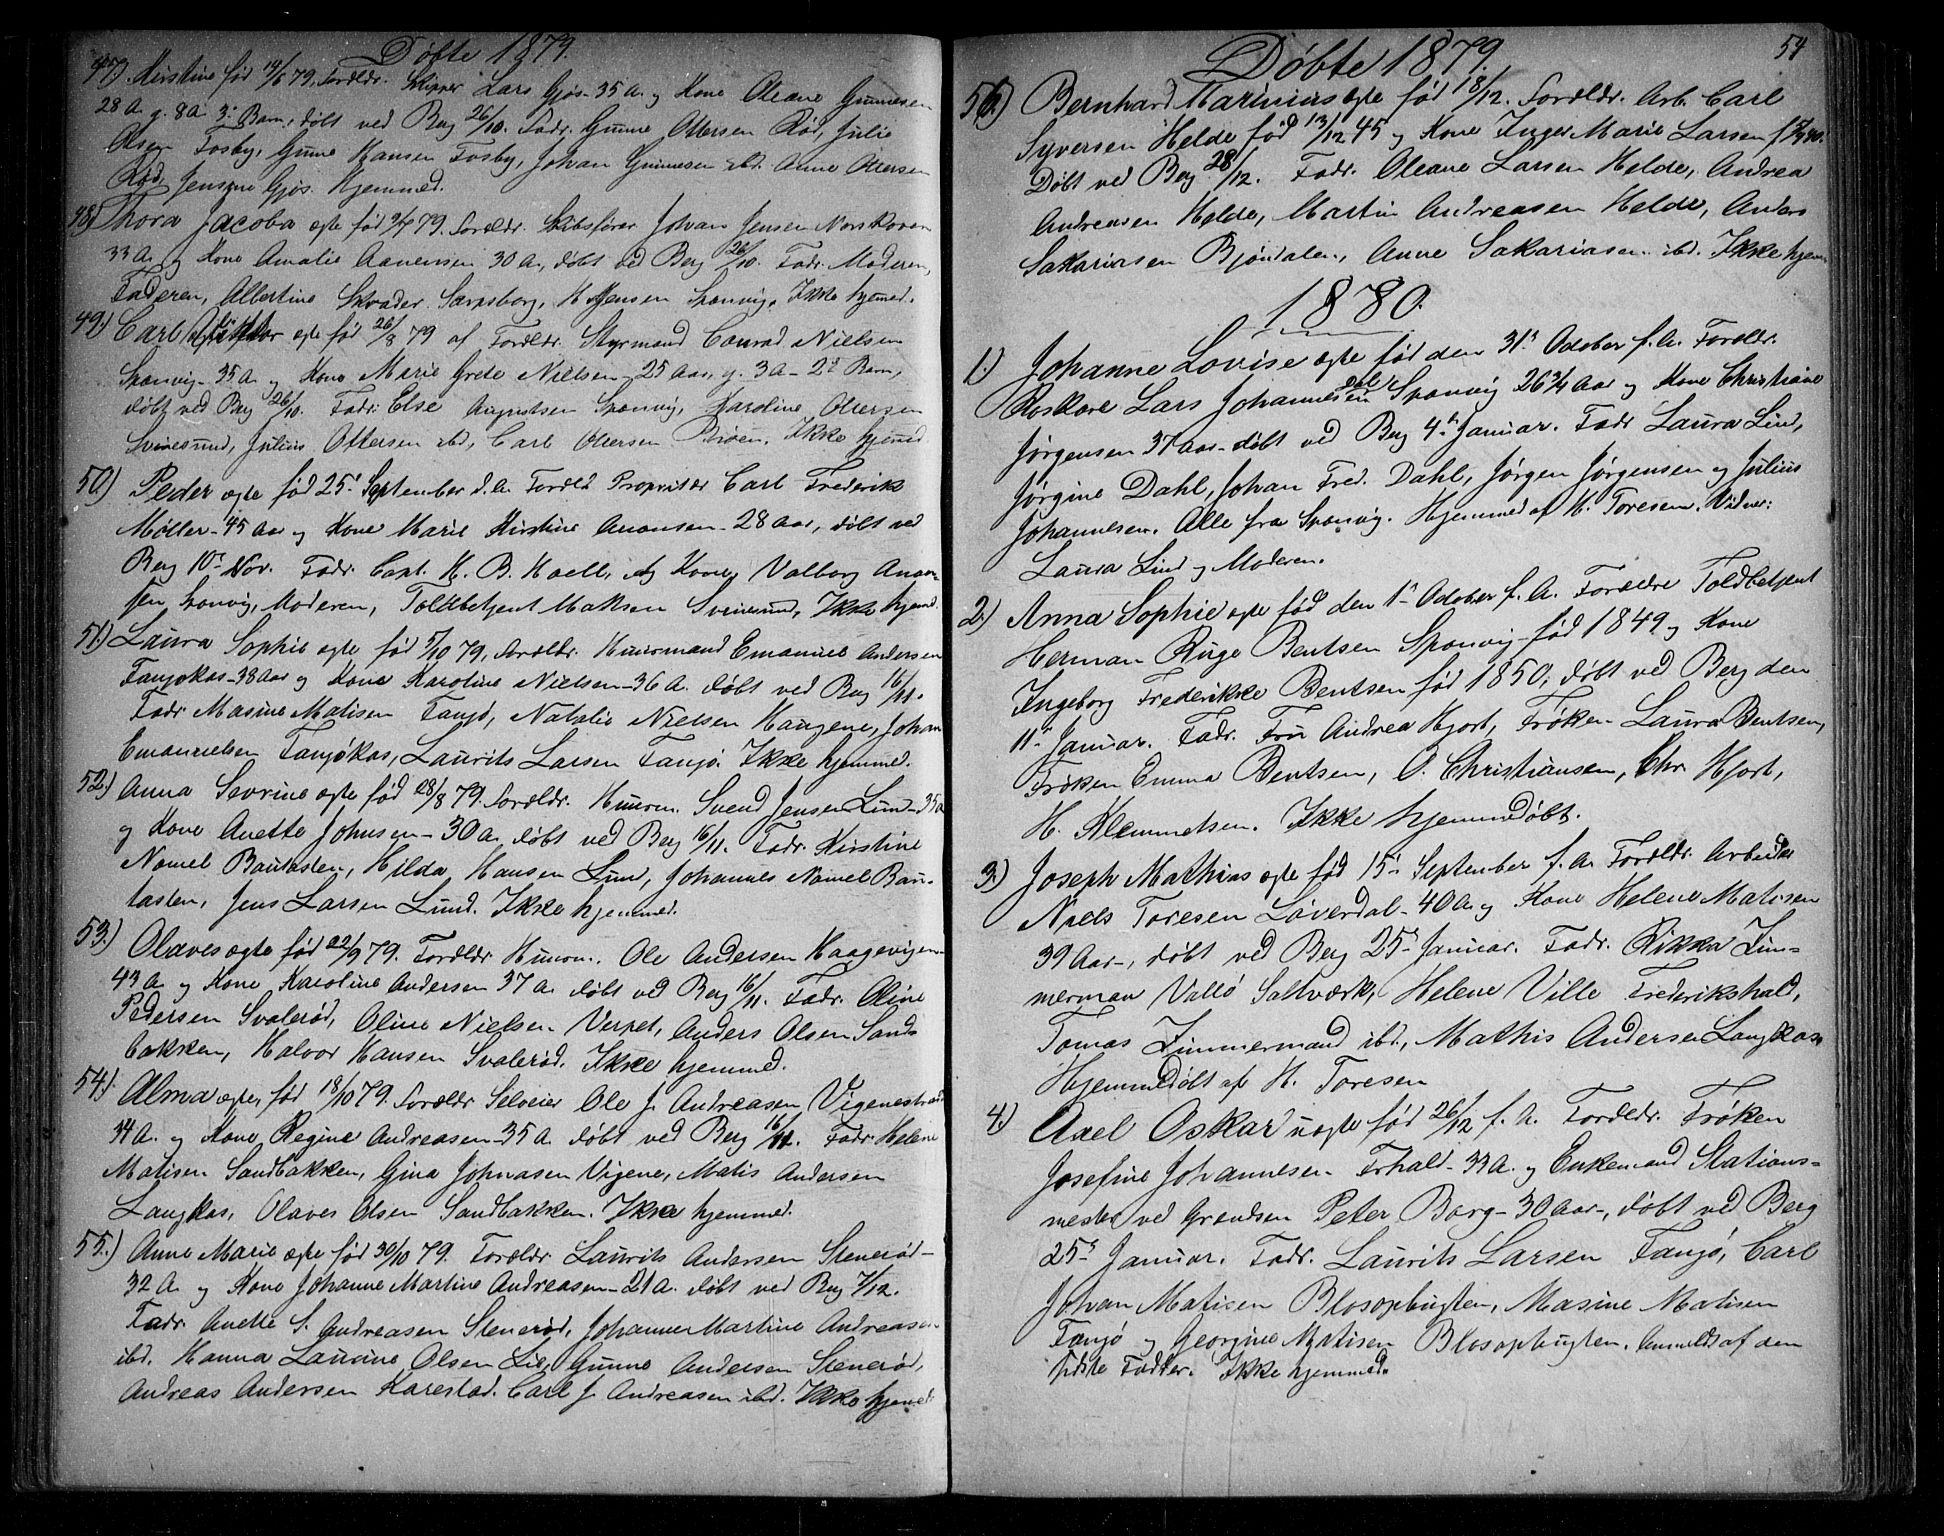 Døbte 1879.
47). Kirstine født 14/5 79, Forældr. Skipper Lars Gjøs - 35 A. og Kone Oleane Gunnesen
28 A. g. 8 A. 3. Barn, døbt ved Berg 26/10. Fadr. Gunne Ottersen Rød, Julie
Olsen Fosby, Gune Hansen Fosby, Johan Gunnesen ibd. Anne Ottersen
Rød, Jensine Gjøs. Hjemmed.
48) Thora Jacoba ægte født 2/7 79. Forældr. Skibsfører Johan Jensen
33 A. og Kone Amalie Aanensen 30 A., døbt ved Berg 26/10. Fadr. Moderen,
Faderen, Albertine Skvader Sarpsborg, H. Jensen Sponvig, Ikke hjemmed.
49.) Carl ægte født 26/8 79 af Forældr. Styrmand Conrad Nielsen
Sponvig - 35 A. og Kone Marie Grete Nielsen - 25 Aar, g. 3 A - 2d Barn,
døbt ved Berg 26/10. Fadr: Else Augustsen Sponvig, Karoline Ottersen
Svinesund, Julius Ottersen ibd, Carl Ottersen Ikke hjemmed
50) Peder ægte født 25. September d. A. Foræld Propritær Carl Frederik
Møller - 45 Aar og Kone Marie Kirstine Anonsen - 28 Aar, døbt ved
Berg 10. Nov. Fadr. Capt. H. B. og Kone, Valborg Anon-
sen Sponvig, Moderen, Toldbetjent Maksen Svinesund, Ikke hjemd.
51.) Laura Sophie ægte født 5/10 79, Forældr. Huusmand Emanuel Andersen
Tangokas - 38 Aar og Kone Karoline Nielsen - 36 A. døbt ved Berg 16/11.
Fadr Masine Matisen Tangø, Natalie Nielsen Haugene, Johan
Emanuelsen Tangøkas, Laurits Larsen Tangø. Ikke hjemmed.
52.) Anna Sevrine ægte født 28/8 79. Forældr. Huusm. Svend Jensen Lund - 35 A
og Kone Anette Johnsen - 30 A. døbt ved Berg 16/11. Fadr. Kirstine
Nomel Bautasten, Hilda Hansen Lund, Johannes Nomel Bau-
tasten, Jens Larsen Lund. Ikke hjemmed.
53.) Olaves ægte født 22/9 79. Forældr. Huusm. Ole Andersen Haagevigen -
43 A. og Kone Karoline Andersen 37 A. døbt ved Berg 16/11. Fadr. Oline
Pedersen Svalerød, Oline Nielsen Verpet, Anders Olsen Sand-
bakken, Halvor Hansen Svalerød. Ikke hjemmed.
54). Alma ægte, født 18/10 79. Forældr Selveier Ole J. Andreasen Vigenestrand
34 A. og Kone Regine Andreasen - 35 A. døbt ved Berg 16/11. Fadr: Helene
Matisen Sandbakken, Gina Johnasen Vigene, Matis Andersen
Langkas, Olaves Olsen Sandbakken. Ikke hjemmed.
55.) Anne Marie ægte født 30/10 79. Forældr. Laurits Andersen Stenerød -
32 A. og Kone Johanne Martine Andreasen - 21 A. døbt ved Berg 7/12.
Fadr Anette S. Andreasen Stenerød, Johanne Martine Andreasen
ibd. Hanna Laurine Olsen Lie, Gunne Andersen Stenerød,
Andreas Andersen Karestad. Carl J. Andreasen ibd. Ikke hjemmed
54
Døbte 1879.
56) Bernhard Marinius ægte født 18/12. Forældr. Arb. Carl
Syversen Helde født 13/12 45 og Kone Inger Marie Larsen f.
Døbt ved Berg 28/12. Fadr. Oleane Larsen Helde, Andrea
Andreasen Helde, Martin Andreasen Helde, Anders
Sakariasen Bjørndalen, Anne Sakariasen ibd. Ikke hjem.
1880.
1.) Johanne Lovise ægte født den 31. October f. A. Forældr.
Roskarl Lars Johannesen Sponvig 26 3/4 Aar og Kone Christiane
Jørgensen 37 Aar - døbt ved Berg 4. Januar. Fadr Laura Lind,
Jørgine Dahl, Johan Fred. Dahl, Jørgen Jørgensen og Julius
Johannesen. Alle fra Sponvig. Hjemmed af H. Toresen. Vidner:
Laura Lind og Moderen.
2.) Anna Sophie ægte født den 1. October f. A. Forældre Toldbetjent
Herman Ruge Bentsen Sponvig født 1849 og Kone
Ingeborg Frederikke Bentsen født 1850, døbt ved Berg den
11. Januar. Fadr. Fru Andrea Hjort, Frøken Laura Bentsen,
Frøken Emma Bentsen, O. Christiansen, Chr. Hjort,
H. Klemmetsen. Ikke hjemmedøbt.
3.) Joseph Mathias ægte født 15. September f. A. Forældr. Arbeider
Niels Toresen Løverdal - 40 A. og Kone Helene Matisen
39 Aar -, døbt ved Berg 25. Januar. Fadr. Rikka Zim-
merman Vallø Saltværk, Helene Ville Frederikshald,
Tomas Zimmermand ibd., Mathis Andersen Langkas.
Hjemmedøbt af H. Toresen
4.) Axel Oskar uægte født 26/12 f. A. Forældr. Frøken
Josefine Johannesen Frhald - 33 A. og Enkemand Stations-
mester ved Grændsen Peter Borg - 30 Aar -, døbt ved Berg
25. Januar. Fadr. Laurits Larsen Tangø, Carl
Johan Matisen Blosopbugten, Masine Matisen
Tangø og Georgine Matisen Blosopbugten. Anmeldt af den
sidste Fadder. Ikke hjemmed.